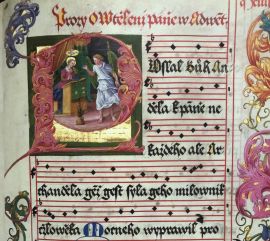 Prozy O Wtěleni Panie w Adwět:
Poslal Bůh An
děla k panie ne
każdeho ale Ar
chanděla geż gest syla geho milownik
człowěka Mocneho wyprawil pro